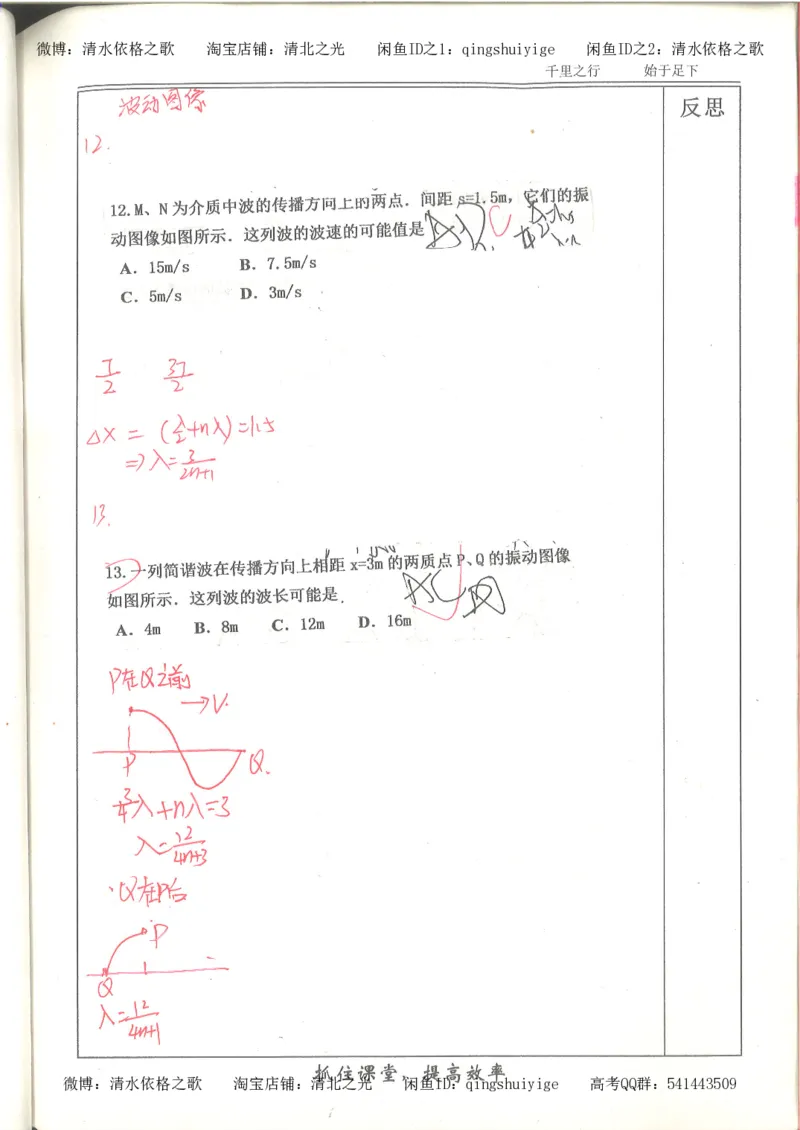 微博：清水依格之歌 淘宝店铺：清北之光 闲鱼ID之1：qingshuiyige 闲鱼ID之2：清水依格之歌
千里之行 始于足下
反思
波动图像
12.
12.M、N为介质中波的传播方向上的两点．间距 s=1.5m，它们的振
动图像如图所示．这列波的波速的可能值是
A．15m/s B．7.5m/s
C．5m/s D．3m/s
T/2 3T/2
△X = (λ/2+nλ)=1.5
=>λ=3/(2n+1)
13.
13.一列简谐波在传播方向上相距 x=3m 的两质点 P、Q 的振动图像
如图所示．这列波的波长可能是．
A．4m B．8m C．12m D．16m
P在Q之前
→V
P Q
3/4λ+nλ=3
λ=12/(4n+3)
Q在P后
P
Q
λ=12/(4n+1)
抓住课堂，提高效率
微博：清水依格之歌 淘宝店铺：清北之光 闲鱼ID：qingshuiyige 高考QQ群：541443509